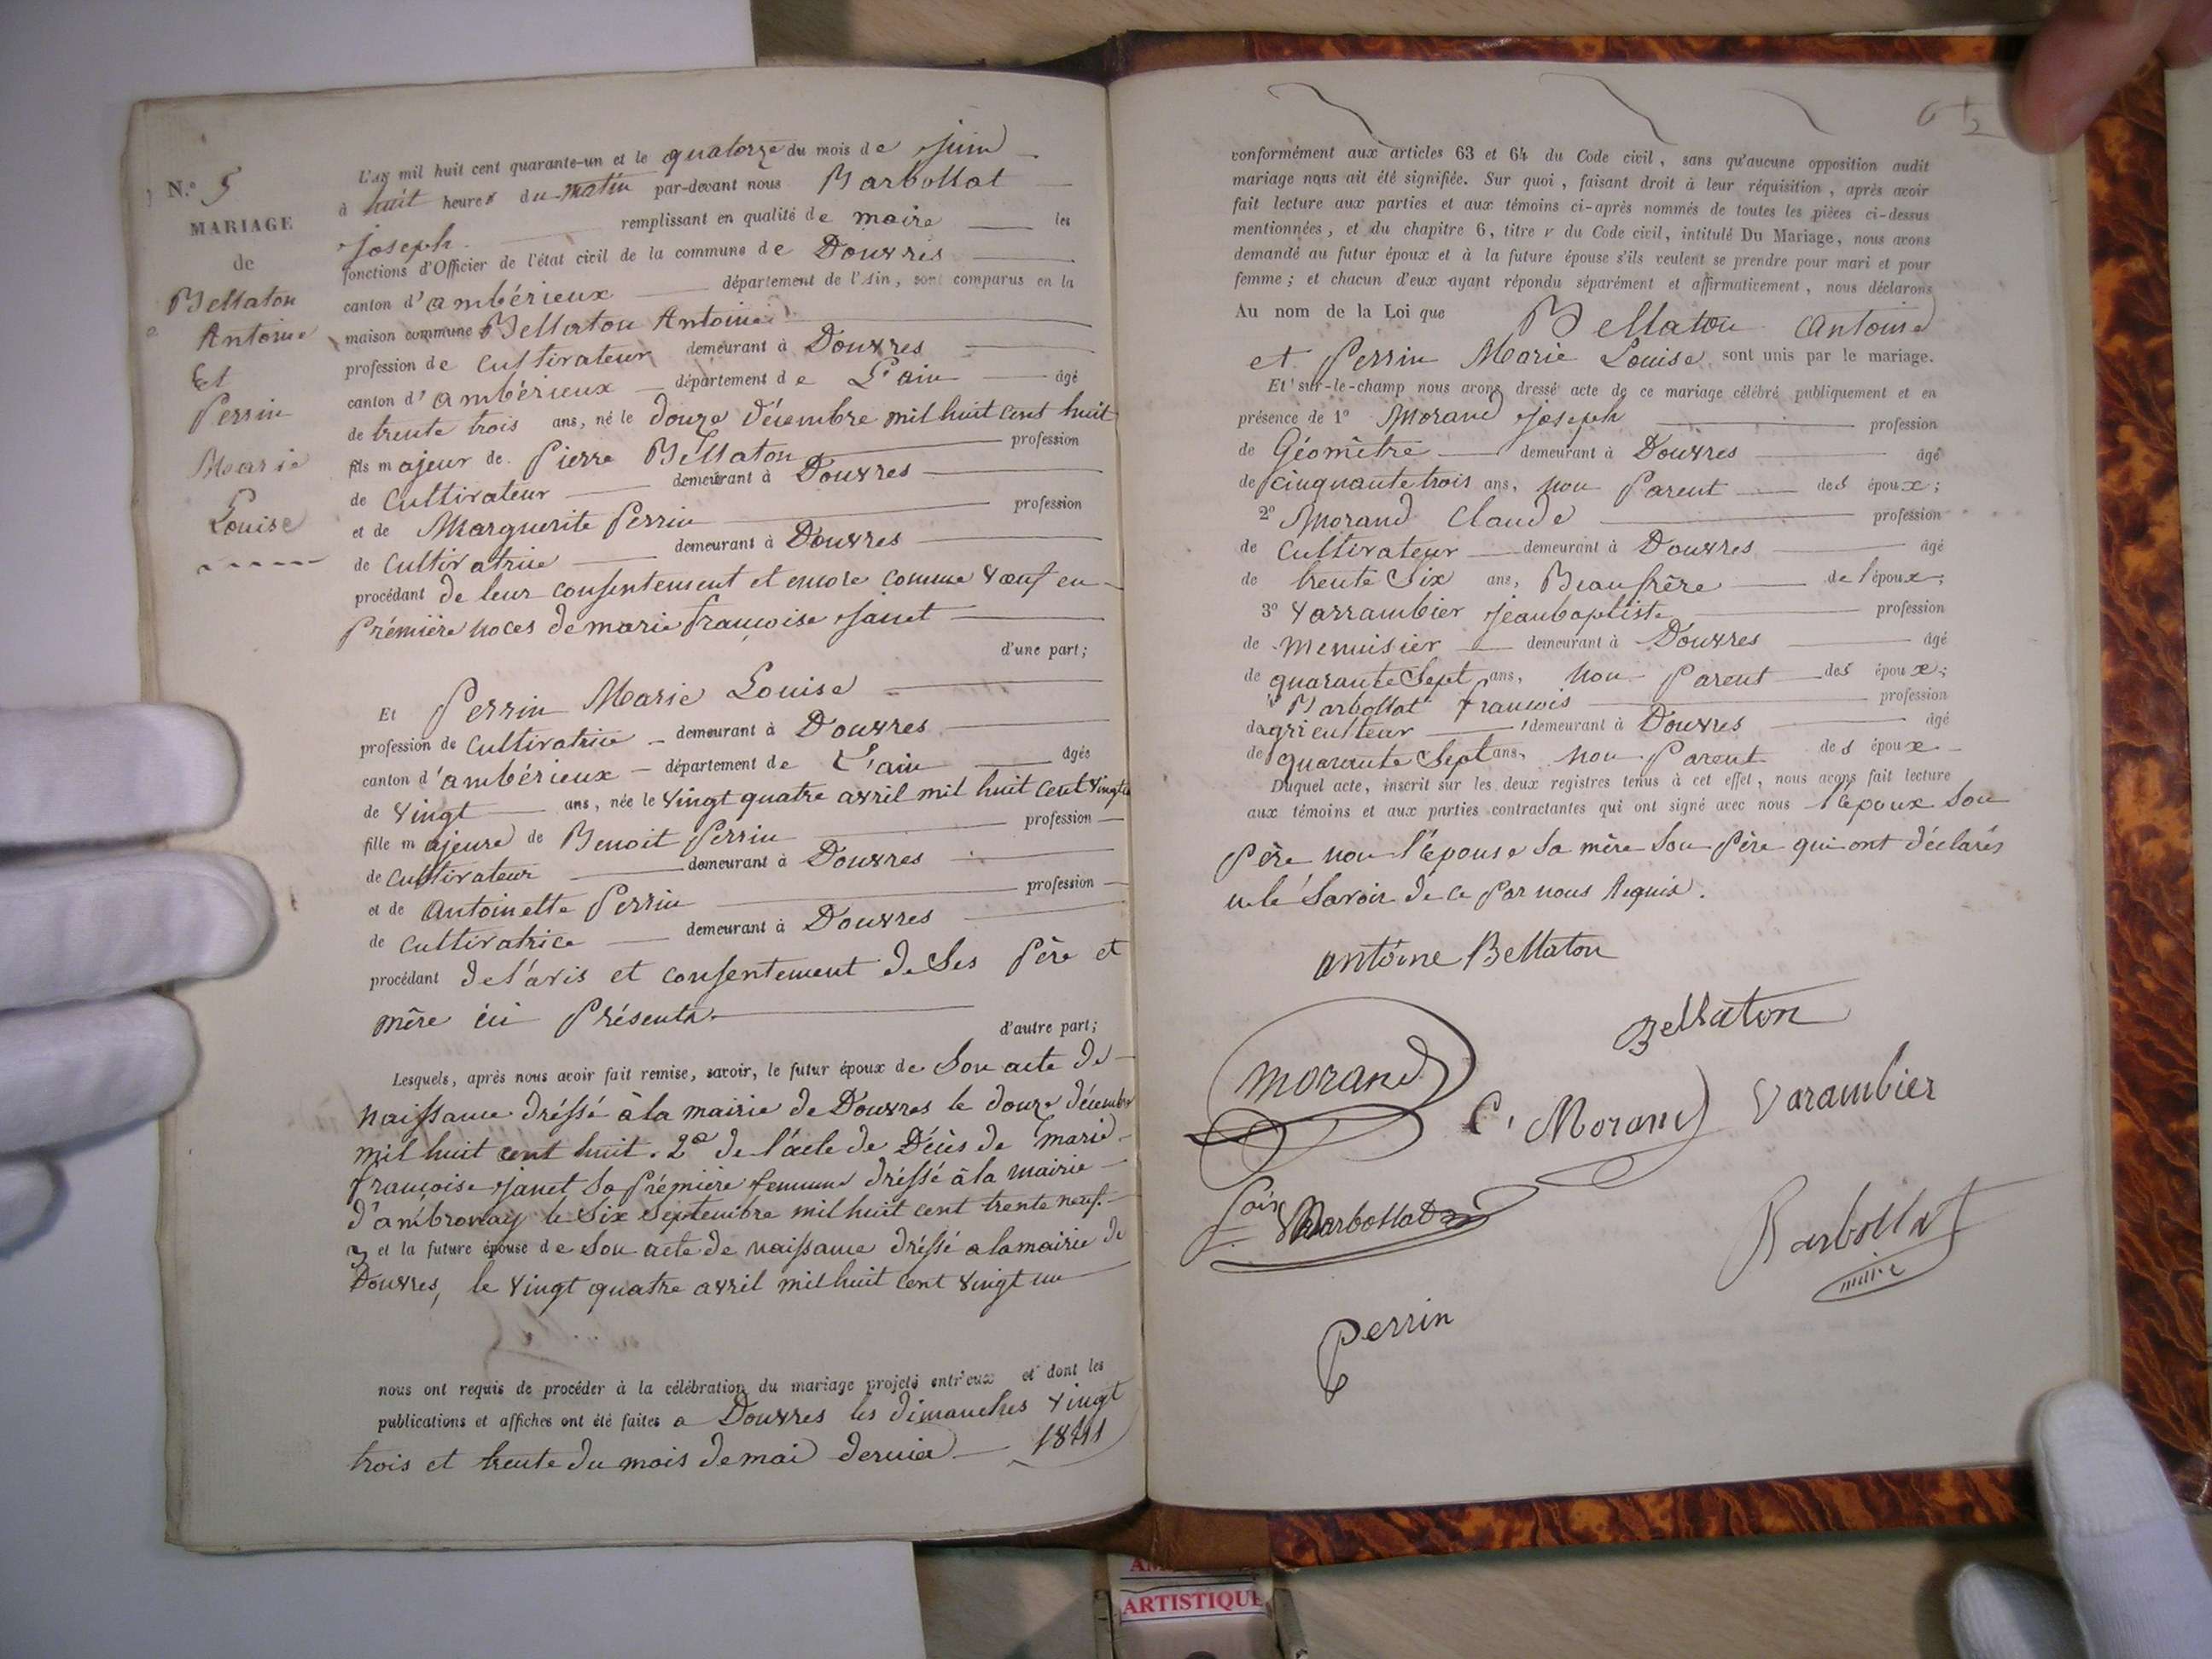 N.° 5
MARIAGE
de
Bellaton
Antoine
Et
Perrin
Marie
Louise
L'an mil huit cent quarante-un et le quatorze du mois de juin
à huit heures du matin par-devant nous Barbollat
joseph remplissant en qualité de maire les
fonctions d'Officier de l'état civil de la commune de Douvres
canton d'ambérieux département de l'Ain, sont comparus en la
maison commune Bellaton Antoine
profession de Cultivateur demeurant à Douvres
canton d'ambérieux département de L'ain âgé
de trente trois ans, né le douze décembre mil huit cent huit
fils majeur de Pierre Bellaton profession
de Cultivateur demeurant à Douvres
et de Marguerite Perrin profession
de Cultivatrice demeurant à Douvres
procédant de leur consentement et encore comme veuf en
premiere noces de marie francoise janet
d'une part;
Et Perrin Marie Louise
profession de Cultivatrice demeurant à Douvres
canton d'ambérieux département de L'ain agés
de vingt ans, née le vingt quatre avril mil huit cent vingt un
fille majeure de Benoit Perrin profession
de Cultivateur demeurant à Douvres
et de Antoinette Perrin profession
de Cultivatrice demeurant à Douvres
procédant de l'avis et consentement de ses Père et
mère ici Présents
d'autre part;
Lesquels, après nous avoir fait remise, savoir, le futur époux de son acte de
naissance dréssé à la mairie de Douvres le douze décembre
mil huit cent huit. 2° de l'acte de Décès de marie
francoise janet sa premiere femme dréssé à la mairie
d'ambronay le six septembre mil huit cent trente neuf.
3 et la future épouse de son acte de naissance dréssé a la mairie de
Douvres, le vingt quatre avril mil huit cent vingt un
nous ont requis de procéder à la célébration du mariage projeté entr'eux et dont les
publications et affiches ont été faites a Douvres les dimanches vingt
trois et trente du mois de mai dernier 1841
conformément aux articles 63 et 64 du Code civil, sans qu'aucune opposition audit
mariage nous ait été signifiée. Sur quoi, faisant droit à leur réquisition, après avoir
fait lecture aux parties et aux témoins ci-après nommés de toutes les pièces ci-dessus
mentionnées, et du chapitre 6, titre v du Code civil, intitulé Du Mariage, nous avons
demandé au futur époux et à la future épouse s'ils veulent se prendre pour mari et pour
femme; et chacun d'eux ayant répondu séparément et affirmativement, nous déclarons
Au nom de la Loi que Bellaton Antoine
et Perrin Marie Louise sont unis par le mariage.
Et sur-le-champ nous avons dressé acte de ce mariage célébré publiquement et en
présence de 1° Morand joseph profession
de Géomètre demeurant à Douvres âgé
de cinquante trois ans, non Parent des époux;
2° Morand Claude profession
de Cultivateur demeurant à Douvres âgé
de trente Six ans, Beaufrère de l'époux;
3° Varrambier jeanbaptiste profession
de Menuisier demeurant à Douvres âgé
de quarante Sept ans, non Parent des époux;
Barbollat francois profession
dagriculteur demeurant à Douvres âgé
de quarante Sept ans, non Parent des époux
Duquel acte, inscrit sur les deux registres tenus à cet effet, nous avons fait lecture
aux témoins et aux parties contractantes qui ont signé avec nous l'époux son
Père non l'épouse sa mère son Père qui ont déclarés
ne le savoir de ce par nous requis.
antoine Bellaton
Bellaton
Morand
C. Morand
Varambier
Barbollat
Barbollat
mire
Perrin
ARTISTIQUE